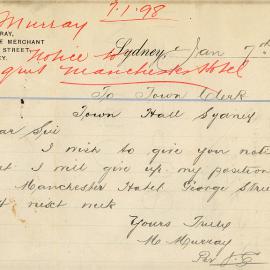 7.1.98
Murray
RAY,
E MERCHANT
STREET,
EY.
Notice to
Sydney, Jan 7th
Manchester Hotel
To Town Clerk
Town Hall Sydney
ear Sir
I wish to give you noti
at I will give up my position
Manchester Hotel George Stre
t next week
Yours Truly
M Murray
Per